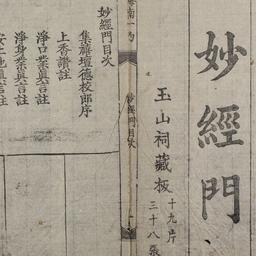 妙經門
玉山祠藏板
十九片
三十八張
妙經門目次
妙經門目次
集蘿壇德校郎序
上香讚註
淨口業眞言註
淨身業眞言註
安土地眞言註